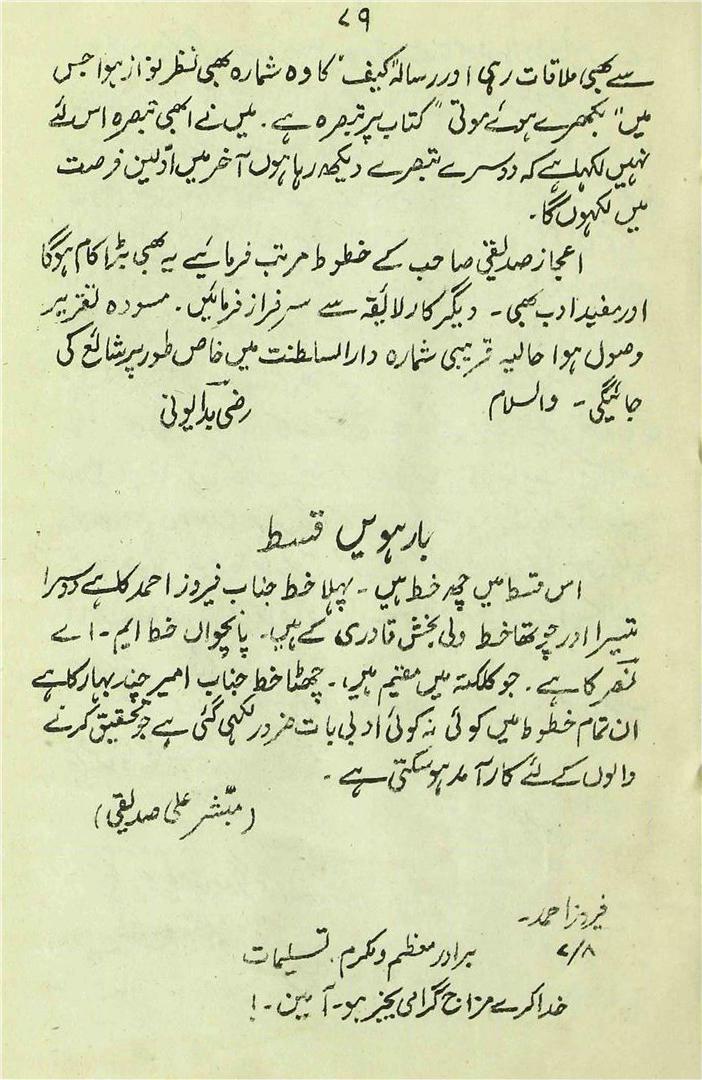 ۷۹
سے بھی ملاقات رہی اور رسالہ "کیف" کا وہ شمارہ بھی نظر نواز ہوا جس
میں "بکھرے ہوئے موتی" کتاب پر تبصرہ ہے۔ میں نے ابھی تبصرہ اس لئے
نہیں لکھا ہے کہ دوسرے تبصرے دیکھ رہا ہوں آخر میں اوّلین فرصت
میں لکھوں گا۔
اعجاز صدیقی صاحب کے خطوط مرتب فرمائیے یہ بھی بڑا کام ہوگا
اور مفید ادب بھی۔ دیگر کار لائقہ سے سرفراز فرمائیں۔ مسودہ تقریر
وصول ہوا حالیہ قریبی شمارہ دارالسلطنت میں خاص طور پر شائع کی
جائیگی۔ والسلام
رضی بدایونی
بارہویں قسط
اس قسط میں چھ خط ہیں۔ پہلا خط جناب فیروز احمد کا ہے دوسرا
تیسرا اور چوتھا خط ولی بخش قادری کے ہیں۔ پانچواں خط ایم۔ اے
نصر کا ہے۔ جو کلکتہ میں مقیم ہیں۔ چھٹا خط جناب امیر چند بہار کا ہے
ان تمام خطوط میں کوئی نہ کوئی ادبی بات ضرور لکھی گئی ہے جو تحقیق کرنے
والوں کے لئے کارآمد ہو سکتی ہے۔
(مبشّر علی صدیقی)
فیروز احمد۔
۷/۸ برادر معظم و مکرم۔ تسلیمات
خدا کرے مزاج گرامی بخیر ہو۔ آمین۔!